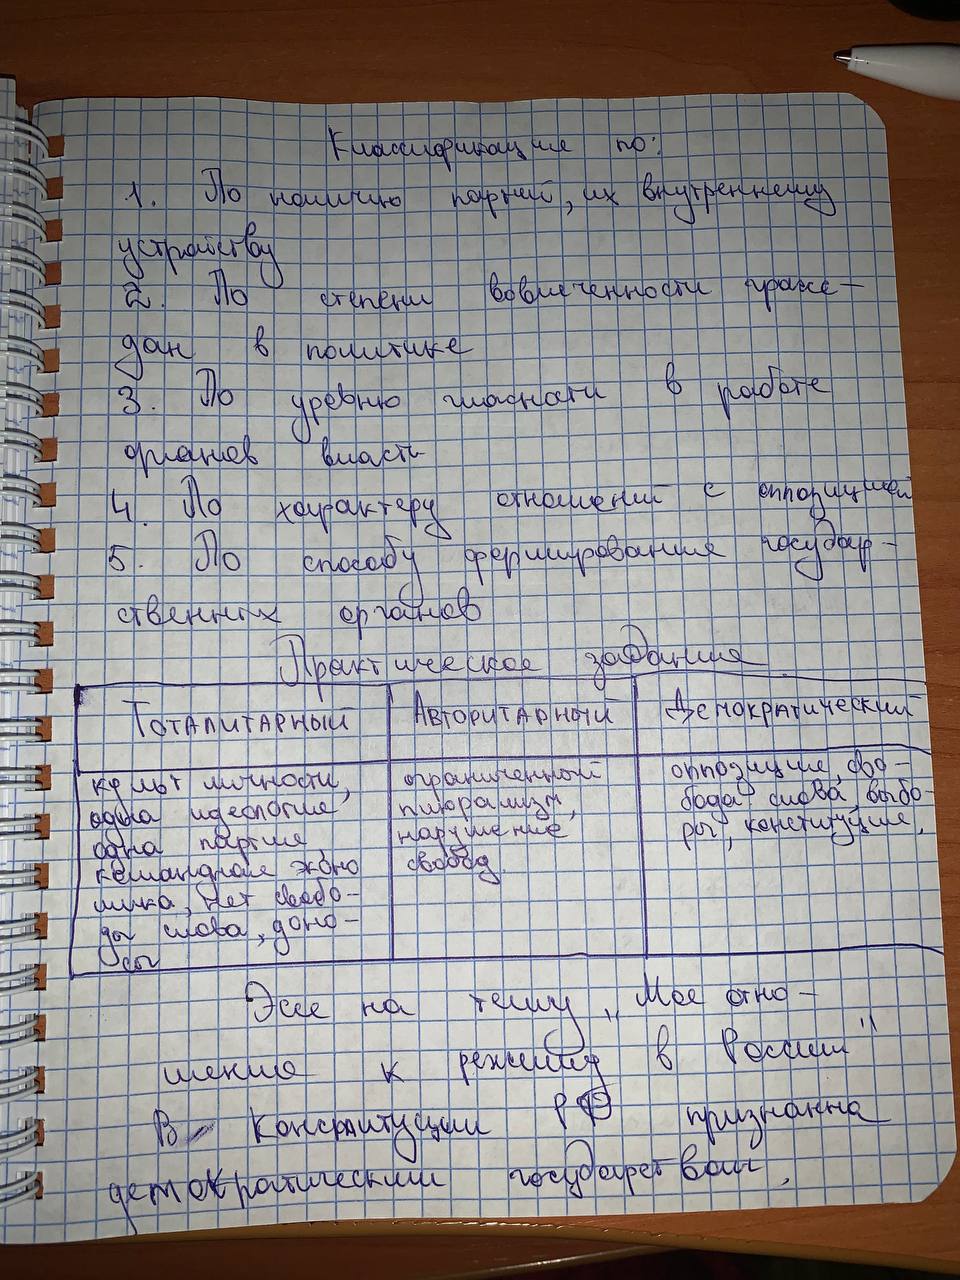 Классификация по:
1. По наличию партий, их внутреннему
устройству
2. По степени вовлеченности граж-
дан в политике
3. По уровню гласности в работе
органов власти
4. По характеру отношений с оппозицией
5. По способу формирования государ-
ственных органов
Практическое задание
Тоталитарный
культ личности,
одна идеология,
одна партия,
командная эконо
мика, нет свобо-
ды слова, доно-
сы
Авторитарный
ограниченный
плюрализм,
нарушение
свобод.
Демократический
оппозиция, сво-
бода слова, выбо-
ры, конституция.
Эссе на тему „Мое отно-
шение к режиму в России"
В Конституции РФ признанна
демократическим государством,